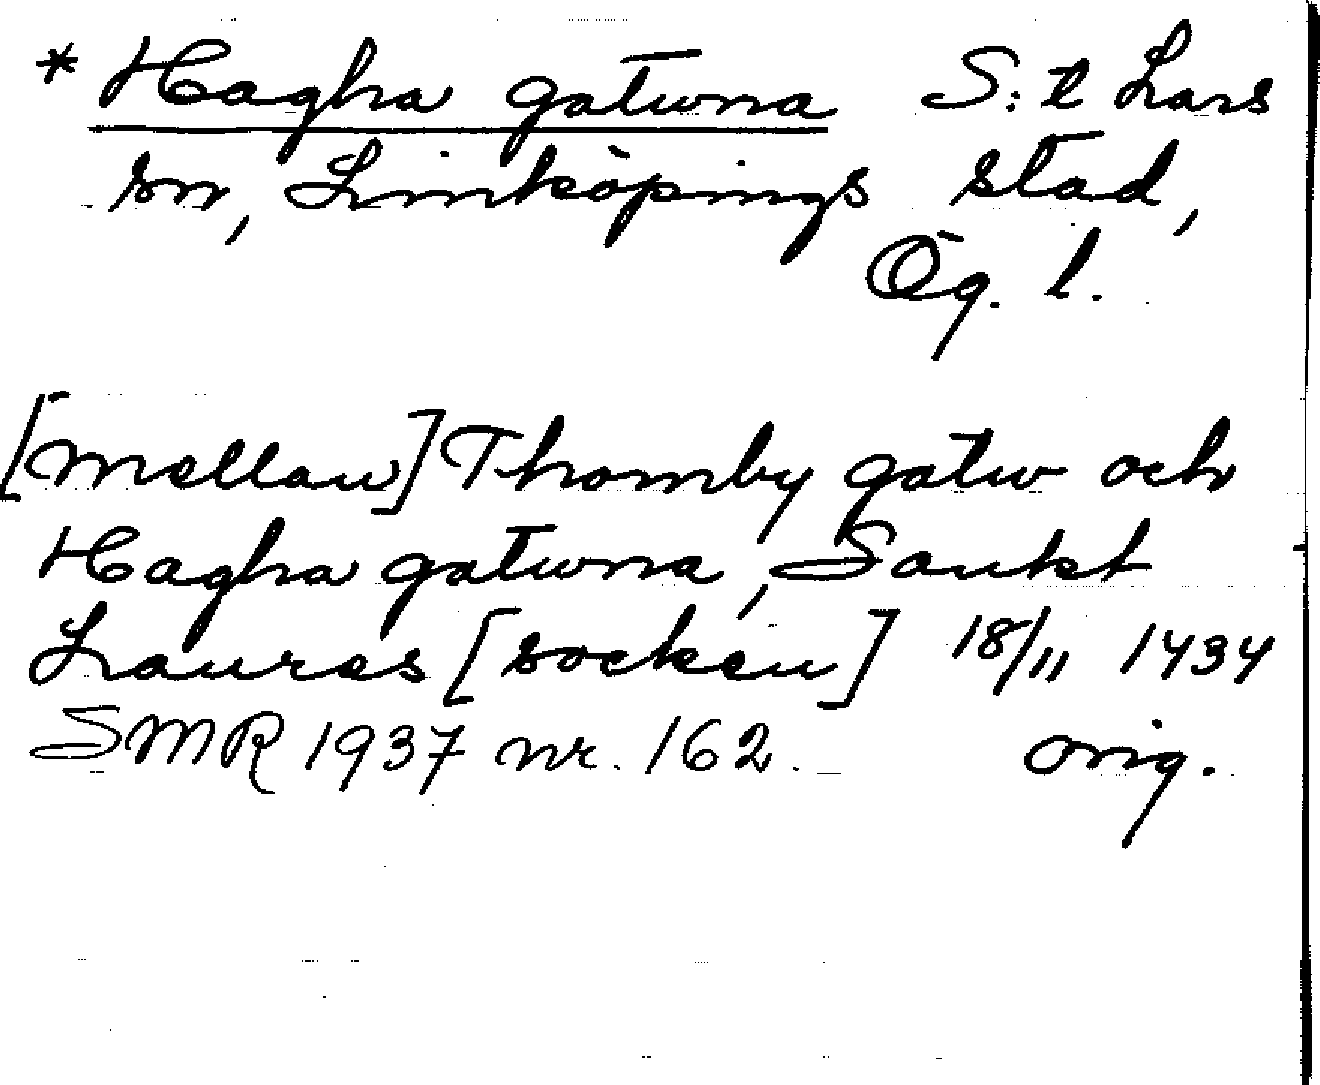 * Hagha gatuna S:t Lars
sn, Linköpings stad,
Ög. l.
[mellan] Thornby gatu och
Hagha gatuna, Sankt
Laures [socken] 18/11 1434
SMR 1937 nr. 162. orig.